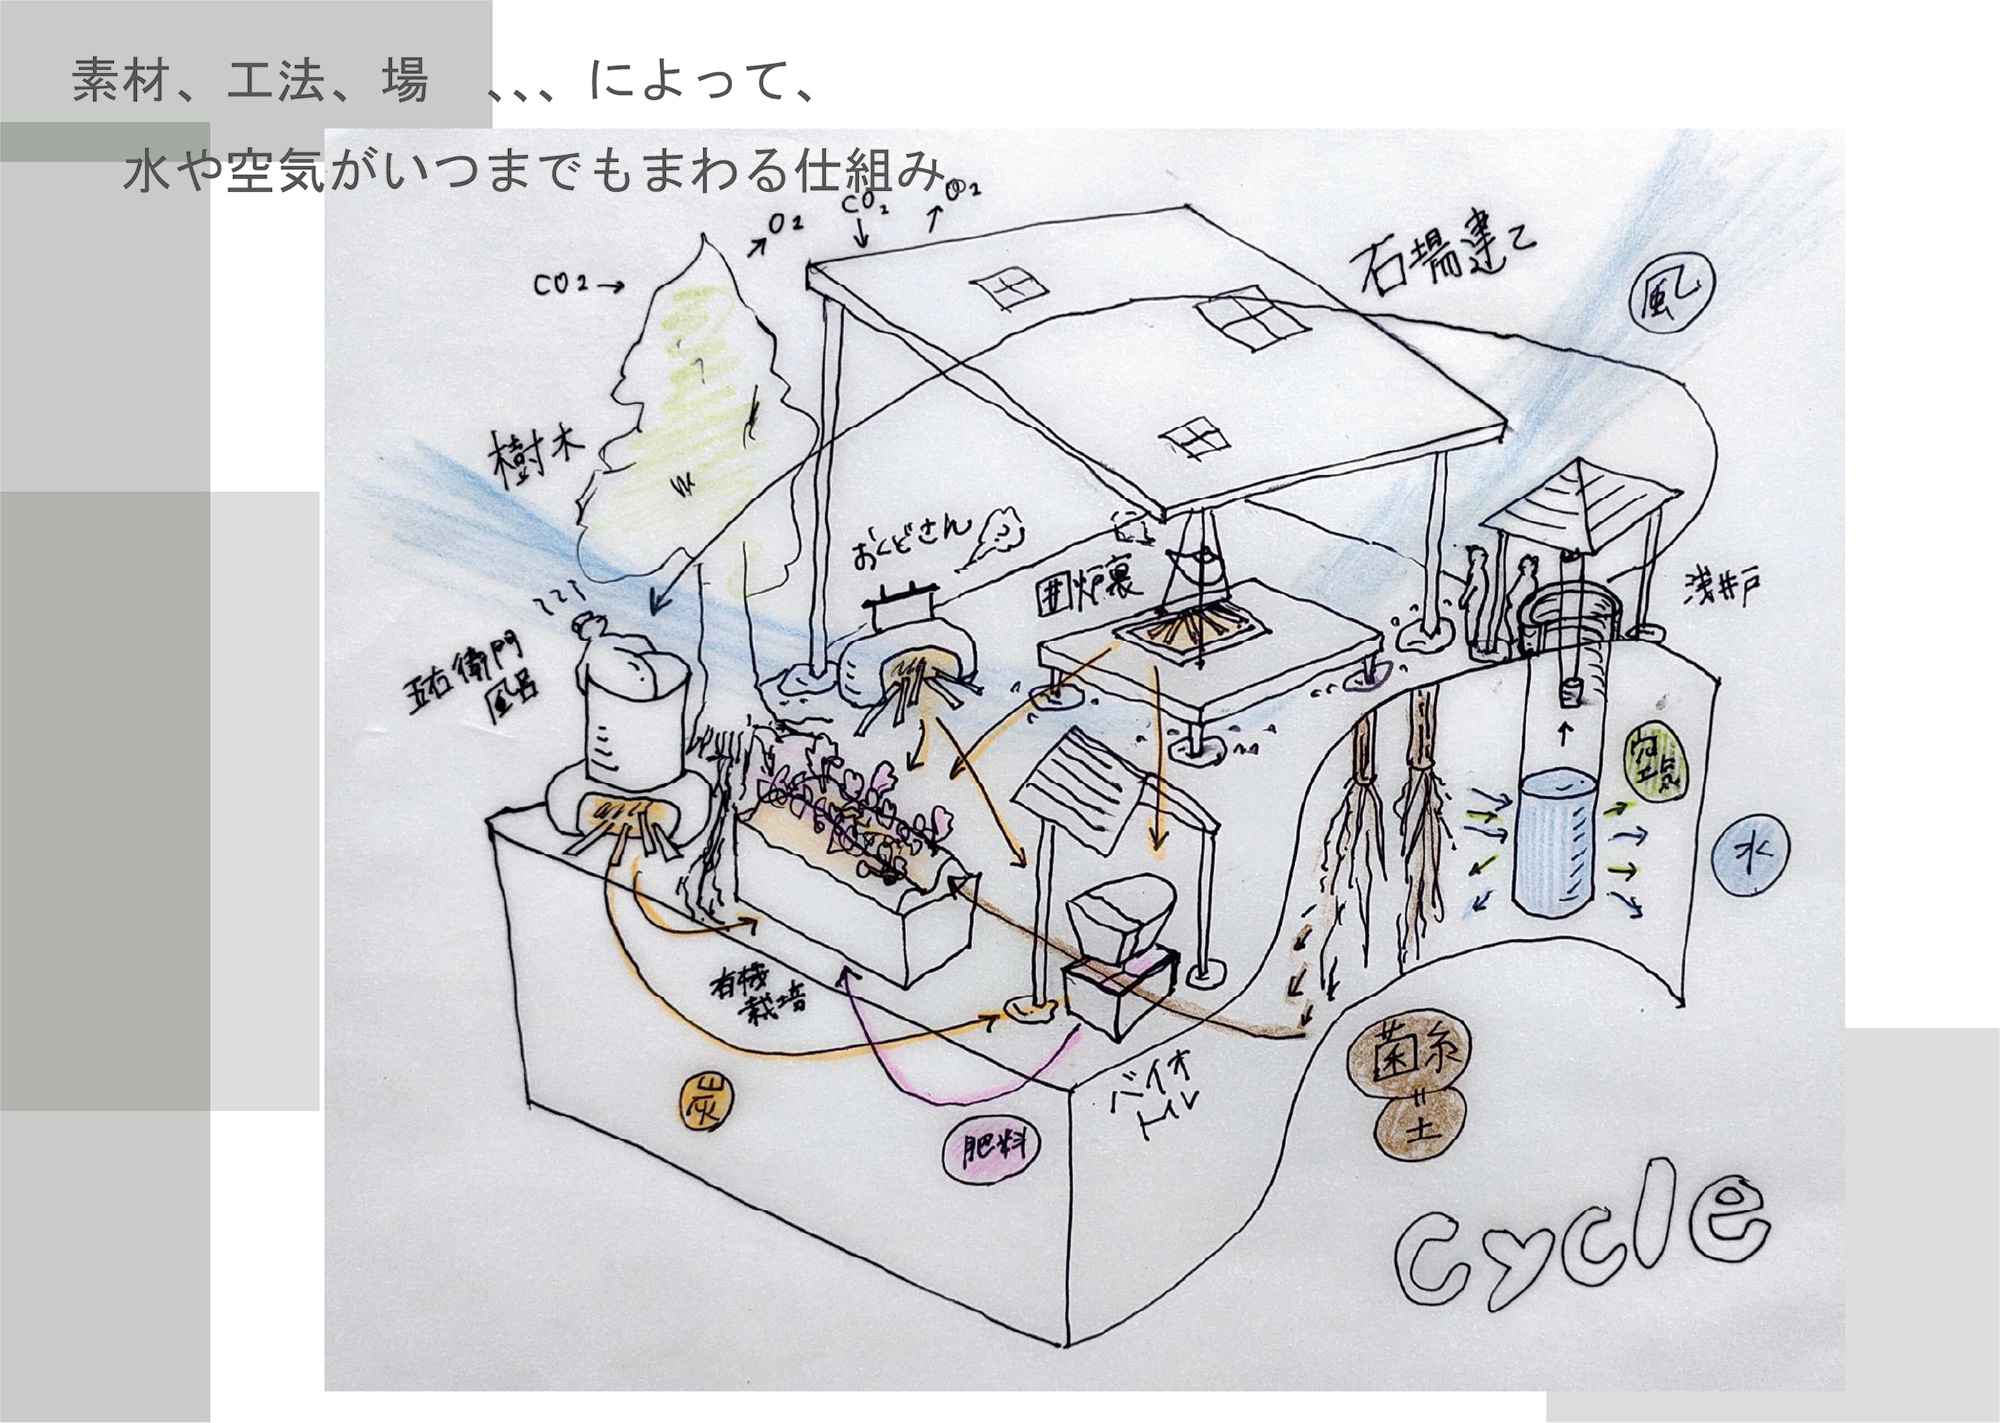 素材、工法、場　、、、によって、
水や空気がいつまでもまわる仕組み
CO2→
O2
CO2
O2
石場建て
風
樹木
おくどさん
囲炉裏
浅井戸
五右衛門
風呂
空気
水
有機
栽培
菌糸
=
土
炭
肥料
バイオ
トイレ
Cycle